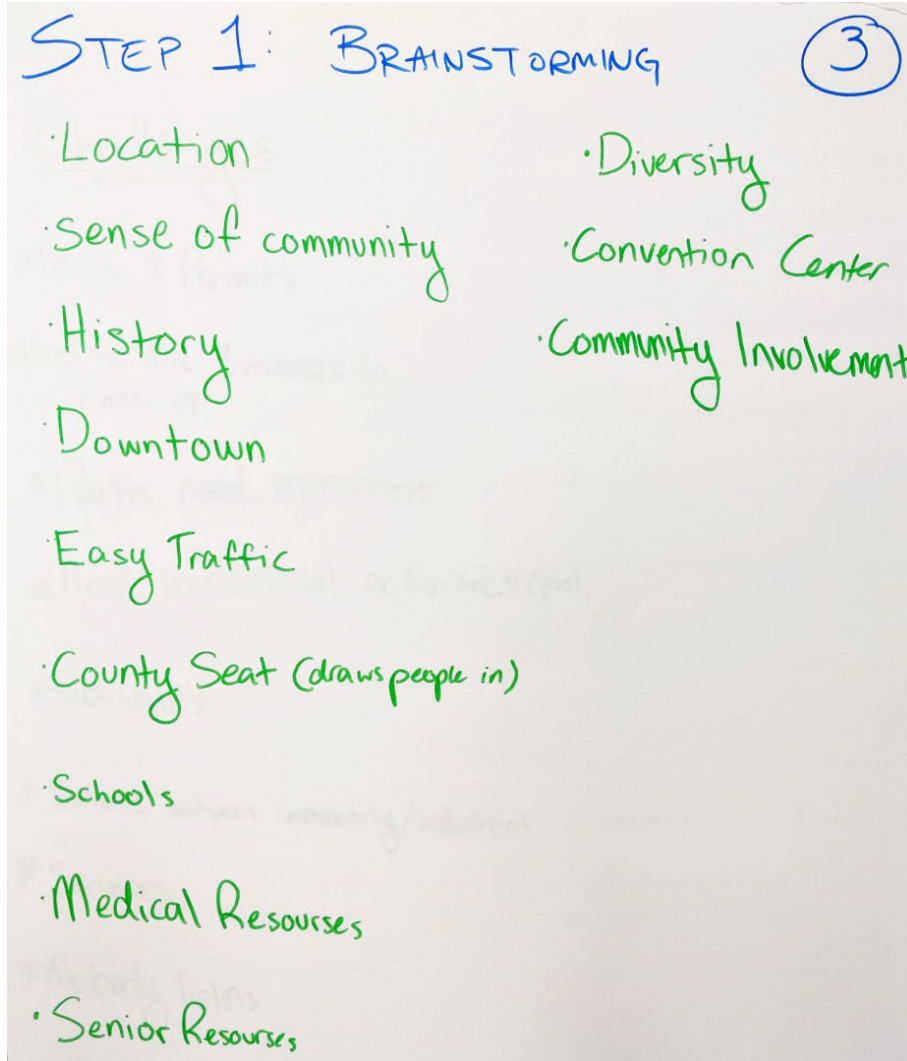 STEP 1: BRAINSTORMING
3
·Location
·Sense of community
·History
·Downtown
·Easy Traffic
·County Seat (draws people in)
·Schools
·Medical Resourses
·Senior Resourses
·Diversity
·Convention Center
·Community Involvement